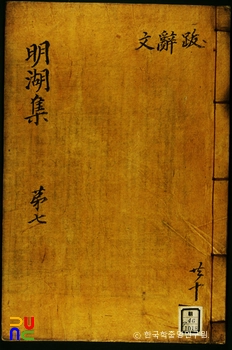 明湖集
第七
跋辭文
共十
© 한국학중앙연구원